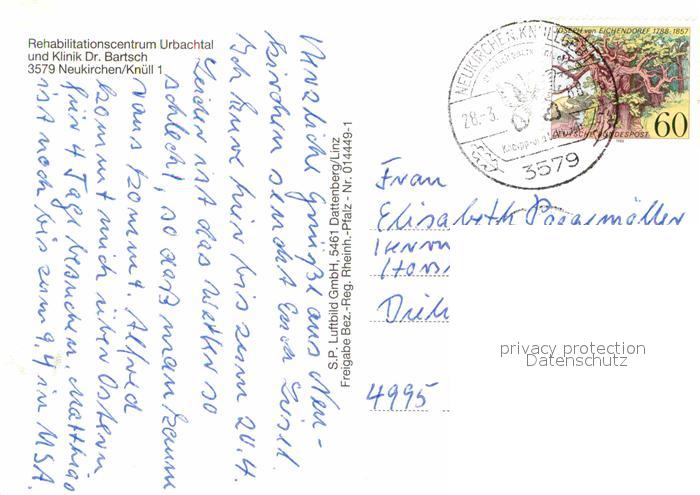 Rehabilitationscentrum Urbachtal
und Klinik Dr. Bartsch
3579 Neukirchen/Knüll 1
Herzliche Grüße aus Neu-
kirchen sendet Euch Liesel.
Ich kure hier bis zum 20.4.
Leider ist das Wetter so
schlecht, so daß man kaum
raus kommt. Alfred
kommt mich über Ostern
für 4 Tage besuchen. Matthias
ist noch bis zum 9.4 in USA.
S.P. Luftbild GmbH, 5461 Dattenberg/Linz
Freigabe Bez.-Reg. Rheinh.-Pfalz - Nr. 014449-1
NEUKIRCHEN, KNÜLLGEB
28.-3.
3579
JOSEPH von EICHENDORFF 1788-1857
DEUTSCHE BUNDESPOST
60
Frau
Elisabeth
Dieh
4995
privacy protection
Datenschutz